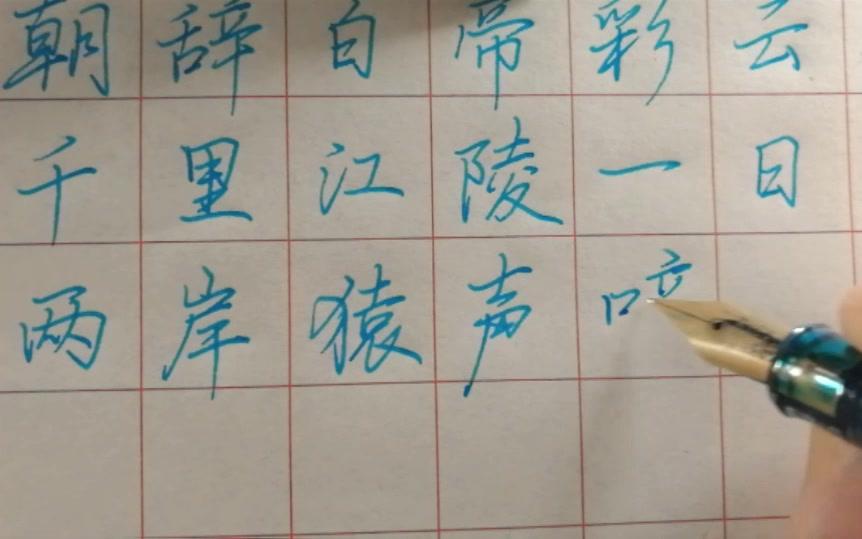 朝辞白帝彩云
千里江陵一日
两岸猿声